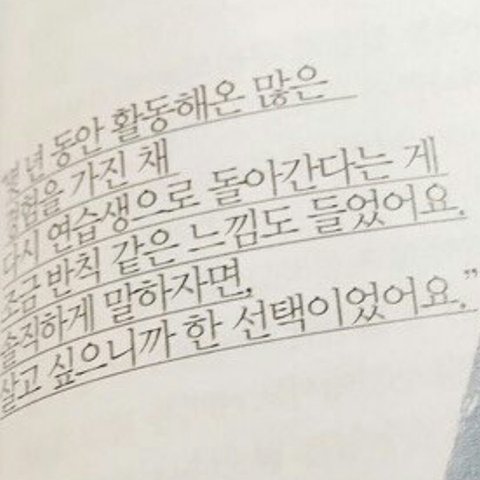 몇 년 동안 활동해온 많은
경험을 가진 채
다시 연습생으로 돌아간다는 게
조금 반칙 같은 느낌도 들었어요.
솔직하게 말하자면,
살고 싶으니까 한 선택이었어요.”